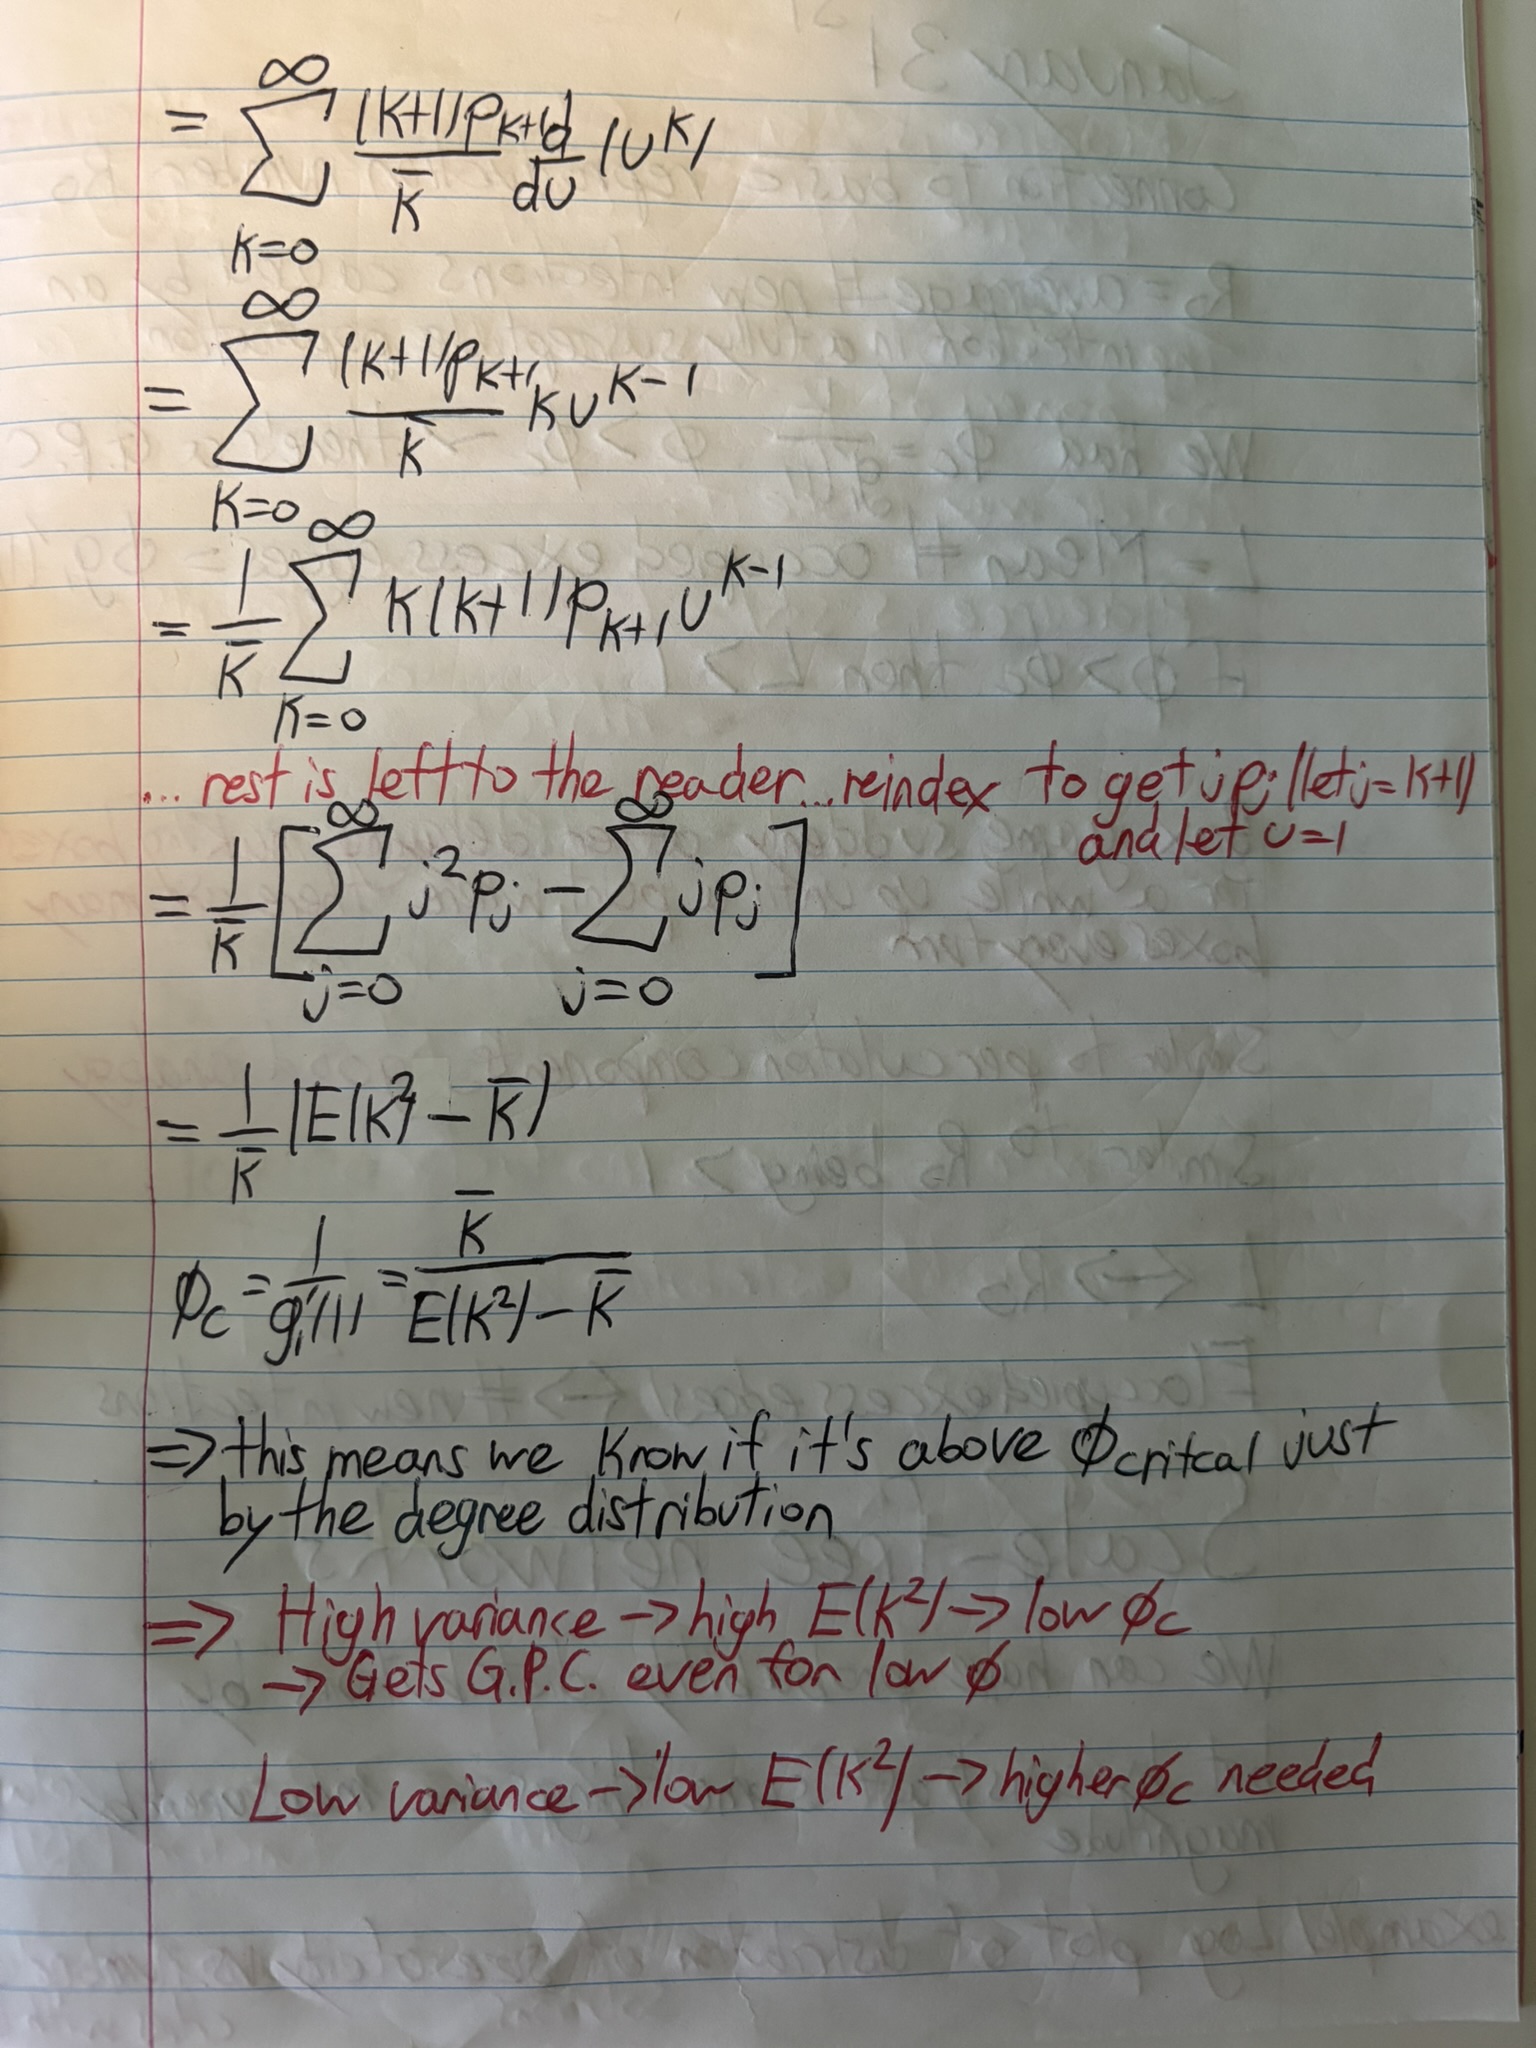 = ∞ Σ k=0 (k+1)p_{k+1} / k̄ d/du (u^k)
= ∞ Σ k=0 (k+1)p_{k+1} / k̄ k u^{k-1}
= 1/k̄ ∞ Σ k=0 k(k+1)p_{k+1} u^{k-1}
... rest is left to the reader... reindex to get jp_j (let j=k+1)
and let u=1
= 1/k̄ [ ∞ Σ j=0 j²p_j − ∞ Σ j=0 jp_j ]
= 1/k̄ (E(k²) − k̄)
ϕ_c = 1/g₁'(1) = k̄ / E(k²) − k̄
=> this means we know if it's above ϕ_critcal just
by the degree distribution
=> High variance -> high E(k²) -> low ϕ_c
-> Gets G.P.C. even for low ϕ
Low variance -> low E(k²) -> higher ϕ_c needed